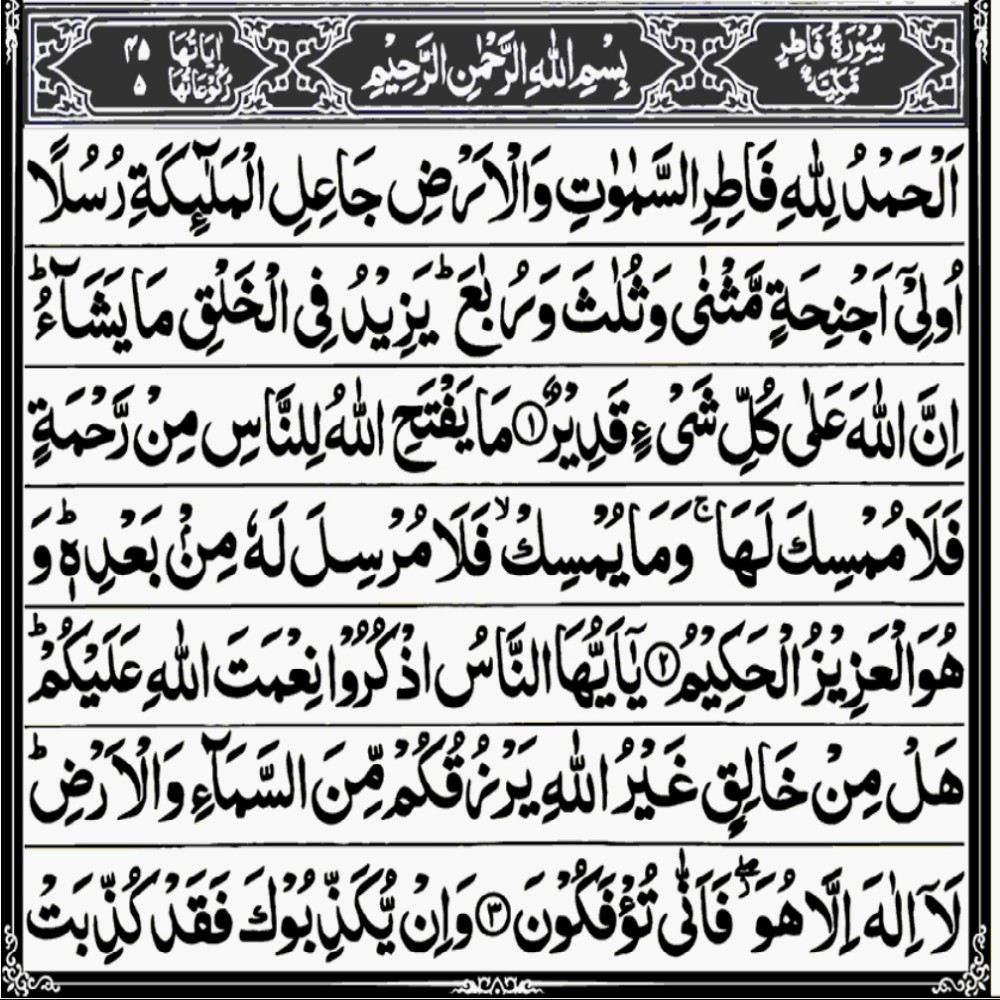 سُوْرَةُ فَاطِرٍ مَكِّيَّةٌ بِسْمِ اللهِ الرَّحْمٰنِ الرَّحِيْمِ اٰيَاتُهَا ۴۵ رُكُوْعَاتُهَا ۵
اَلْحَمْدُ لِلّٰهِ فَاطِرِ السَّمٰوٰتِ وَالْاَرْضِ جَاعِلِ الْمَلٰٓئِكَةِ رُسُلًا
اُولِيْٓ اَجْنِحَةٍ مَّثْنٰى وَثُلٰثَ وَرُبٰعَ ؕ يَزِيْدُ فِى الْخَلْقِ مَا يَشَآءُ ؕ
اِنَّ اللهَ عَلٰى كُلِّ شَىْءٍ قَدِيْرٌ ۝۱ مَا يَفْتَحِ اللهُ لِلنَّاسِ مِنْ رَّحْمَةٍ
فَلَا مُمْسِكَ لَهَا ۚ وَمَا يُمْسِكْ ۙ فَلَا مُرْسِلَ لَهٗ مِنْۢ بَعْدِهٖ ؕ وَ
هُوَ الْعَزِيْزُ الْحَكِيْمُ ۝۲ يٰٓاَيُّهَا النَّاسُ اذْكُرُوْا نِعْمَتَ اللهِ عَلَيْكُمْ ؕ
هَلْ مِنْ خَالِقٍ غَيْرُ اللهِ يَرْزُقُكُمْ مِّنَ السَّمَآءِ وَالْاَرْضِ ؕ
لَآ اِلٰهَ اِلَّا هُوَ ۖؗ فَاَنّٰى تُؤْفَكُوْنَ ۝۳ وَاِنْ يُّكَذِّبُوْكَ فَقَدْ كُذِّبَتْ